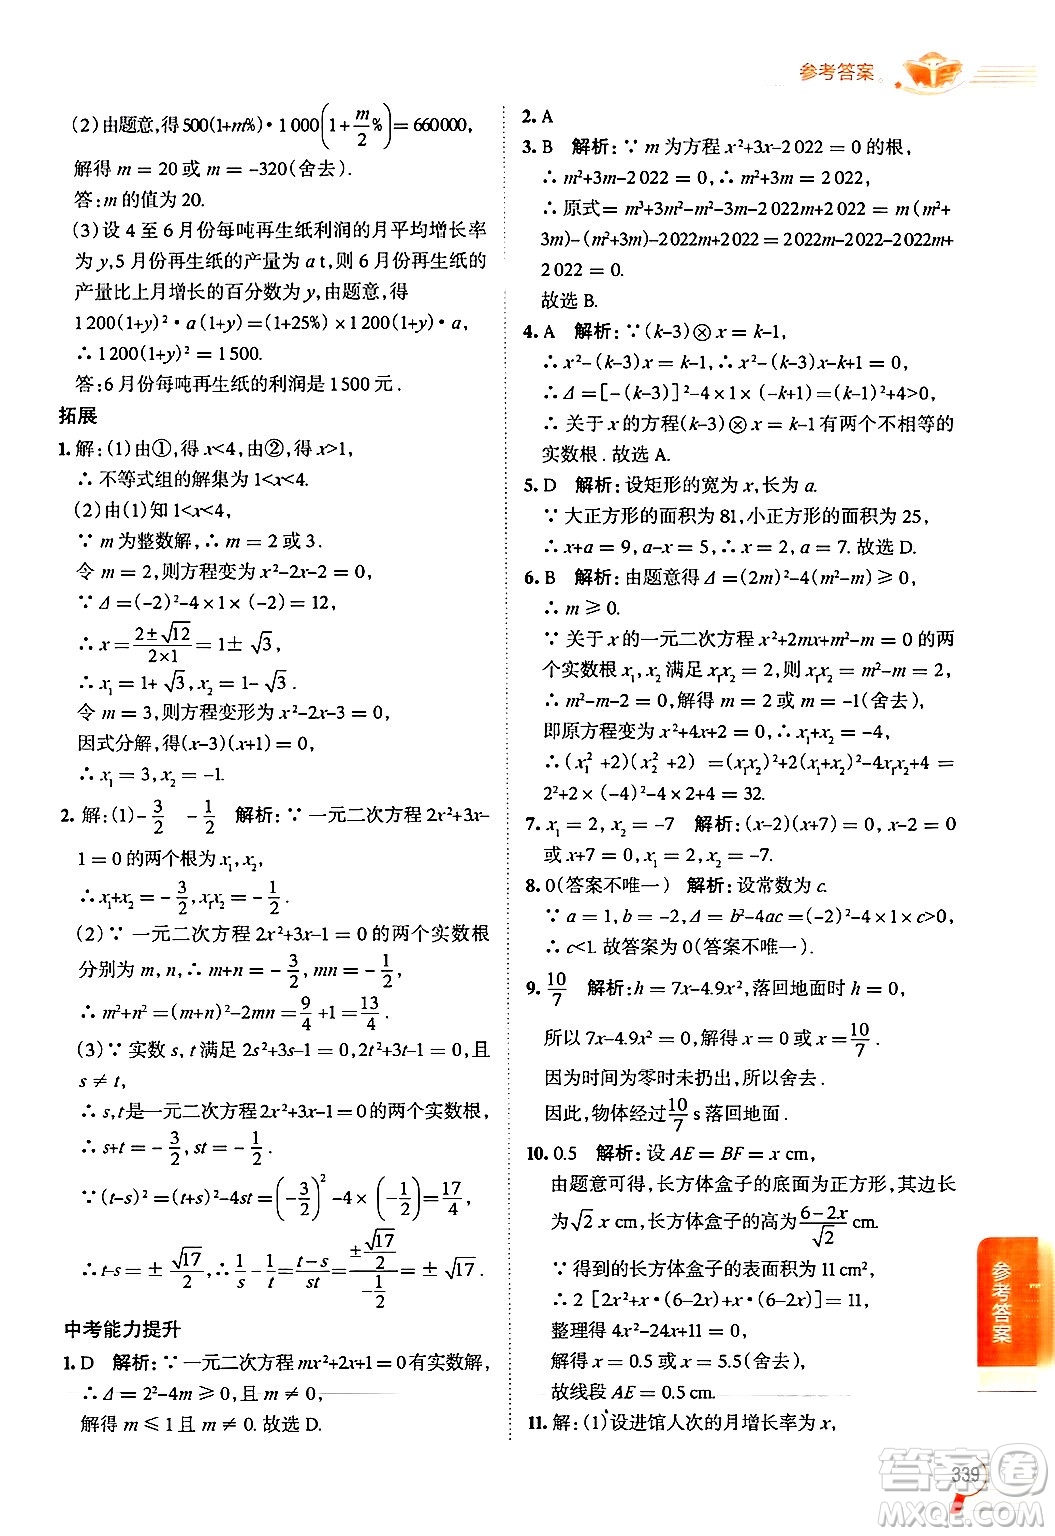 参考答案
(2)由题意,得500(1+m%)·1 000(1+m/2%)=660000,
解得 m = 20 或 m = -320(舍去).
答:m 的值为 20.
(3)设 4 至 6 月份每吨再生纸利润的月平均增长率
为 y,5 月份再生纸的产量为 a t,则 6 月份再生纸的
产量比上月增长的百分数为 y,由题意,得
1 200(1+y)²·a(1+y)=(1+25%)×1 200(1+y)·a,
∴1 200(1+y)² = 1 500.
答:6 月份每吨再生纸的利润是 1 500 元.
拓展
1. 解:(1)由①,得 x<4,由②,得 x>1,
∴ 不等式组的解集为 1<x<4.
(2)由(1)知 1<x<4,
∵ m 为整数解,∴ m = 2 或 3.
令 m = 2,则方程变为 x²-2x-2 = 0,
∵ Δ = (-2)²-4×1×(-2) = 12,
∴ x = (2±√12)/(2×1) = 1±√3.
∴ x₁ = 1+√3, x₂ = 1-√3.
令 m = 3,则方程变形为 x²-2x-3 = 0,
因式分解,得(x-3)(x+1) = 0,
∴ x₁ = 3, x₂ = -1.
2. 解:(1)-3/2 -1/2 解析:∵ 一元二次方程 2x²+3x-
1 = 0 的两个根为 x₁, x₂,
∴ x₁+x₂ = -3/2, x₁x₂ = -1/2.
(2)∵ 一元二次方程 2x²+3x-1 = 0 的两个实数根
分别为 m, n,∴ m+n = -3/2, mn = -1/2,
∴ m²+n² = (m+n)²-2mn = 9/4+1 = 13/4.
(3)∵ 实数 s, t 满足 2s²+3s-1 = 0,2t²+3t-1 = 0,且
s ≠ t,
∴ s,t是一元二次方程 2x²+3x-1 = 0 的两个实数根,
∴ s+t = -3/2, st = -1/2.
∵(t-s)² = (t+s)²-4st = (-3/2)²-4×(-1/2) = 17/4,
∴ t-s = ±√17/2,∴ 1/s-1/t = (t-s)/st = (±√17/2)/(-1/2) = ±√17.
中考能力提升
1. D 解析:∵ 一元二次方程 mx²+2x+1 = 0 有实数解,
∴ Δ = 2²-4m ≥ 0,且 m ≠ 0,
解得 m ≤ 1 且 m ≠ 0. 故选 D.
2. A
3. B 解析:∵ m 为方程 x²+3x-2 022 = 0 的根,
∴ m²+3m-2 022 = 0,∴ m²+3m = 2 022,
∴ 原式 = m³+3m²-m²-3m-2 022m+2 022 = m(m²+
3m)-(m²+3m)-2 022m+2 022 = 2 022m-2 022-2 022m+
2 022 = 0.
故选 B.
4. A 解析:∵(k-3)⊗x = k-1,
∴ x²-(k-3)x = k-1,∴ x²-(k-3)x-k+1 = 0,
∴ Δ = [-(k-3)]²-4×1×(-k+1) = (k-1)²+4>0,
∴ 关于 x 的方程(k-3)⊗x = k-1 有两个不相等的
实数根. 故选 A.
5. D 解析:设矩形的宽为 x,长为 a.
∵ 大正方形的面积为 81,小正方形的面积为 25,
∴ x+a = 9, a-x = 5,∴ x = 2, a = 7. 故选 D.
6. B 解析:由题意得 Δ = (2m)²-4(m²-m) ≥ 0,
∴ m ≥ 0.
∵ 关于 x 的一元二次方程 x²+2mx+m²-m = 0 的两
个实数根 x₁, x₂ 满足 x₁x₂ = 2,则 x₁x₂ = m²-m = 2,
∴ m²-m-2 = 0,解得 m = 2 或 m = -1(舍去),
即原方程变为 x²+4x+2 = 0,∴ x₁+x₂ = -4,
∴(x₁²+2)(x₂²+2) = (x₁x₂)²+2(x₁+x₂)²-4x₁x₂+4 =
2²+2×(-4)²-4×2+4 = 32.
7. x₁ = 2, x₂ = -7 解析:(x-2)(x+7) = 0, x-2 = 0
或 x+7 = 0, x₁ = 2, x₂ = -7.
8. 0(答案不唯一) 解析:设常数为 c.
∵ a = 1, b = -2, Δ = b²-4ac = (-2)²-4×1×c>0,
∴ c<1. 故答案为 0(答案不唯一).
9. 10/7 解析:h = 7x-4.9x²,落回地面时 h = 0,
所以 7x-4.9x² = 0,解得 x₁ = 0, x₂ = 10/7.
因为时间为零时未扔出,所以舍去.
因此,物体经过10/7 s落回地面.
10. 0.5 解析:设 AE = BF = x cm,
由题意可得,长方体盒子的底面为正方形,边长
为√2 x cm,长方体盒子的高为(6-2x)/√2 cm.
∵ 得到的长方体盒子的表面积为 11 cm²,
∴ 2[2x²+x·(6-2x)+x·(6-2x)] = 11,
整理得 4x²-24x+11 = 0,
解得 x = 0.5 或 x = 5.5(舍去),
故线段 AE = 0.5 cm.
11. 解:(1)设进馆人次的月增长率为 x,
参考答案
339
答案圈
MXQE.COM